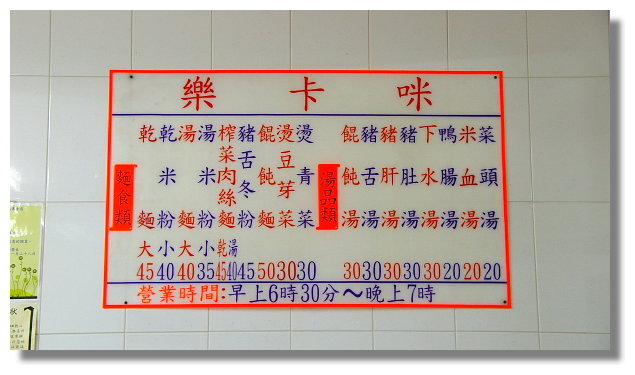 樂卡咪
麵食類
乾麵 大 45
乾米粉 小 40
湯麵 大 40
湯米粉 小 35
榨菜肉絲麵 乾 45 湯 40
豬舌冬粉 45
餛飩麵 50
燙豆芽菜 30
燙青菜 30
湯品類
餛飩湯 30
豬舌湯 30
豬肝湯 30
豬肚湯 30
下水湯 30
鴨腸湯 20
米血湯 20
菜頭湯 20
營業時間:早上6時30分～晚上7時